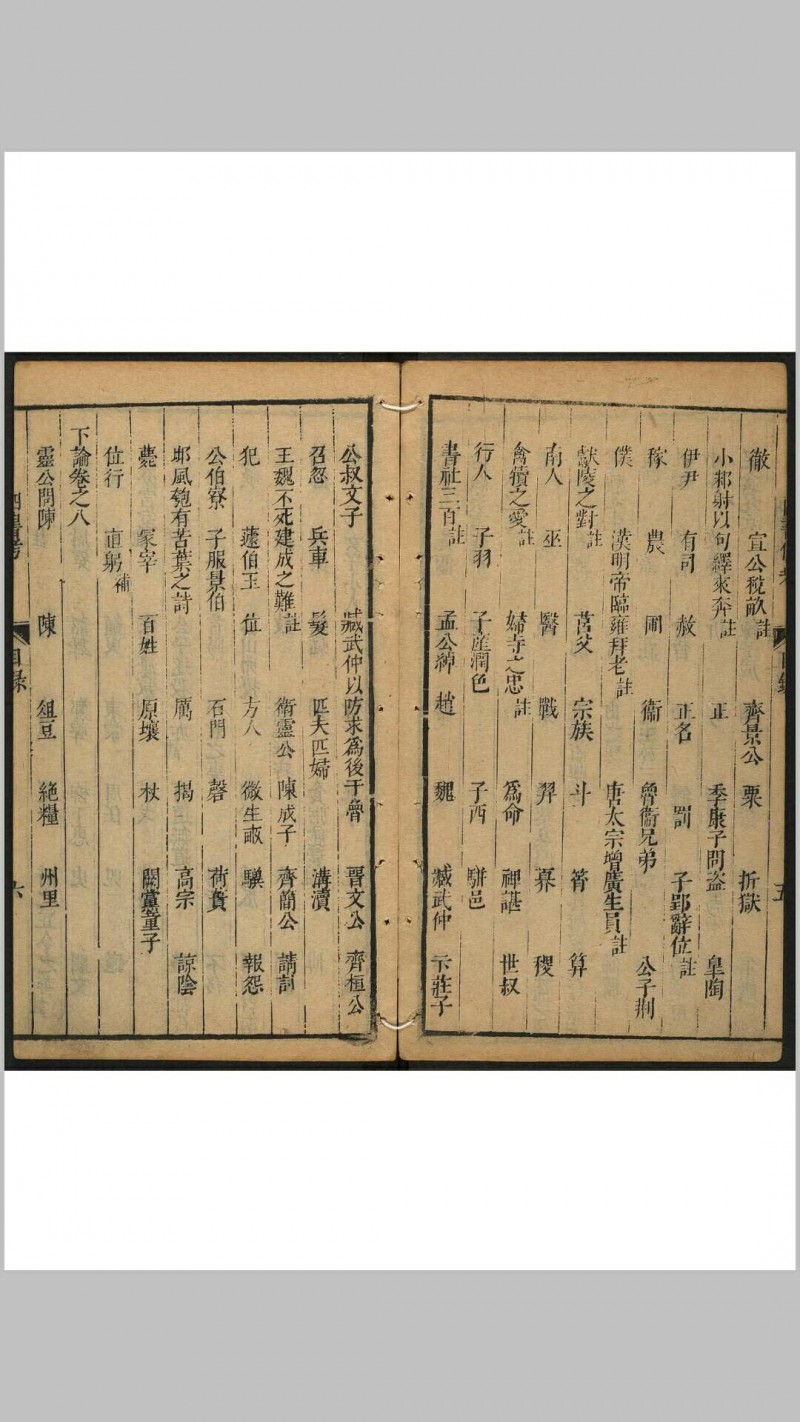 徹 宣公稅畝註 齊景公 粟 折獄
小邾射以句繹來奔註 正 季康子問盜 皐陶
伊尹 有司 赦 正名 罰 子郢辭位註
稼 農 圃 衞 魯衞兄弟 公子荆
僕 漢明帝臨雍拜老註 唐太宗增廣生員註
獻陵之對註 莒父 宗族 斗 筲 算
南人 巫 醫 戰 羿 奡 稷
禽犢之愛註 婦寺之忠註 爲命 裨諶 世叔
行人 子羽 子產潤色 子西 駢邑
書社三百註 孟公綽 趙 魏 臧武仲 卞莊子
五
公叔文子 臧武仲以防求爲後于魯 晉文公 齊桓公
召忽 兵車 髮 匹夫匹婦 溝瀆
王魏不死建成之難註 衛靈公 陳成子 齊簡公 請討
犯 蘧伯玉 位 方人 微生畝 驥 報怨
公伯寮 子服景伯 石門 磬 荷蕢
邶風匏有苦葉之詩 厲 揭 高宗 諒陰
薨 冢宰 百姓 原壤 杖 闕黨童子
位行 直躬補
下論卷之八
靈公問陳 陳 俎豆 絶糧 州里
目錄
六